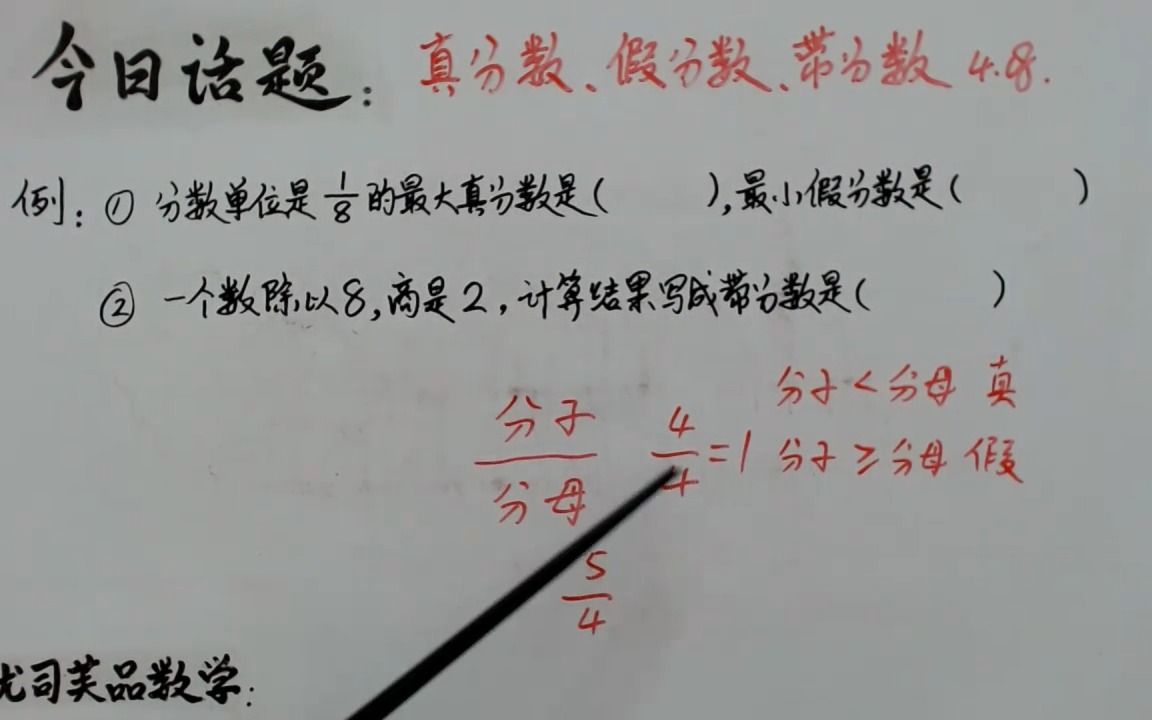 今日话题：真分数、假分数、带分数 4.8.
例：① 分数单位是 1/8 的最大真分数是（　　），最小假分数是（　　）
② 一个数除以8，商是2，计算结果写成带分数是（　　）
分子＜分母 真
分子/分母 4/4=1 分子≥分母 假
5/4
司芙品数学：